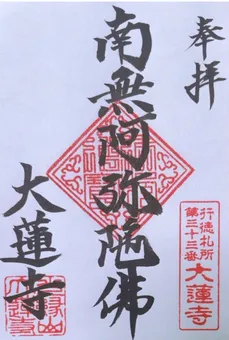 奉拝
行徳札所
第三十三番 大蓮寺
南無阿弥陀佛
大蓮寺